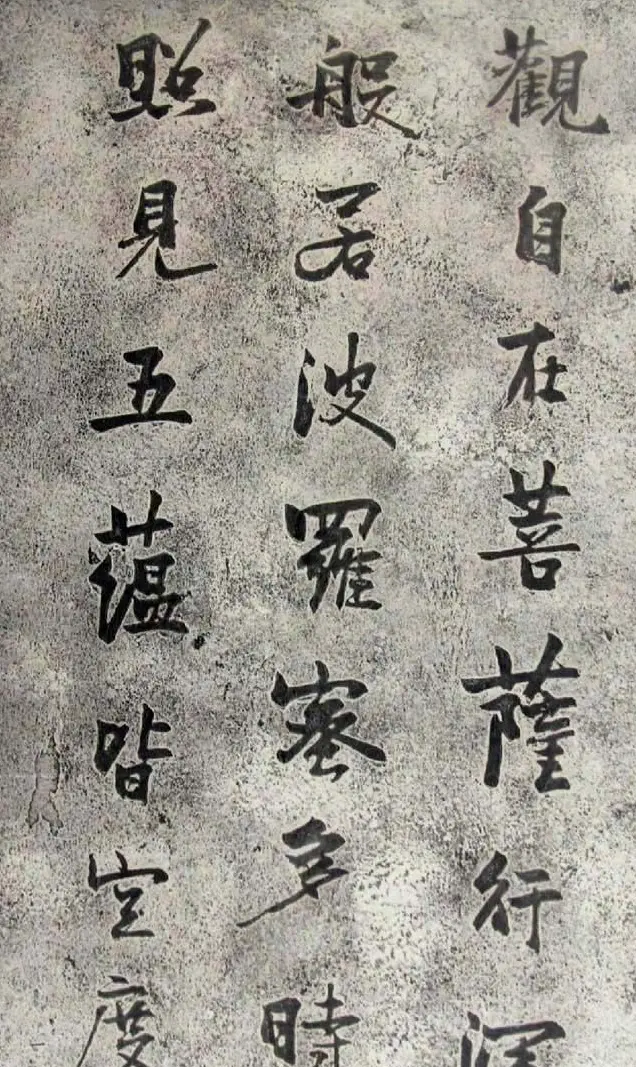 觀自在菩薩行深
般若波羅蜜多時
照見五蘊皆空度